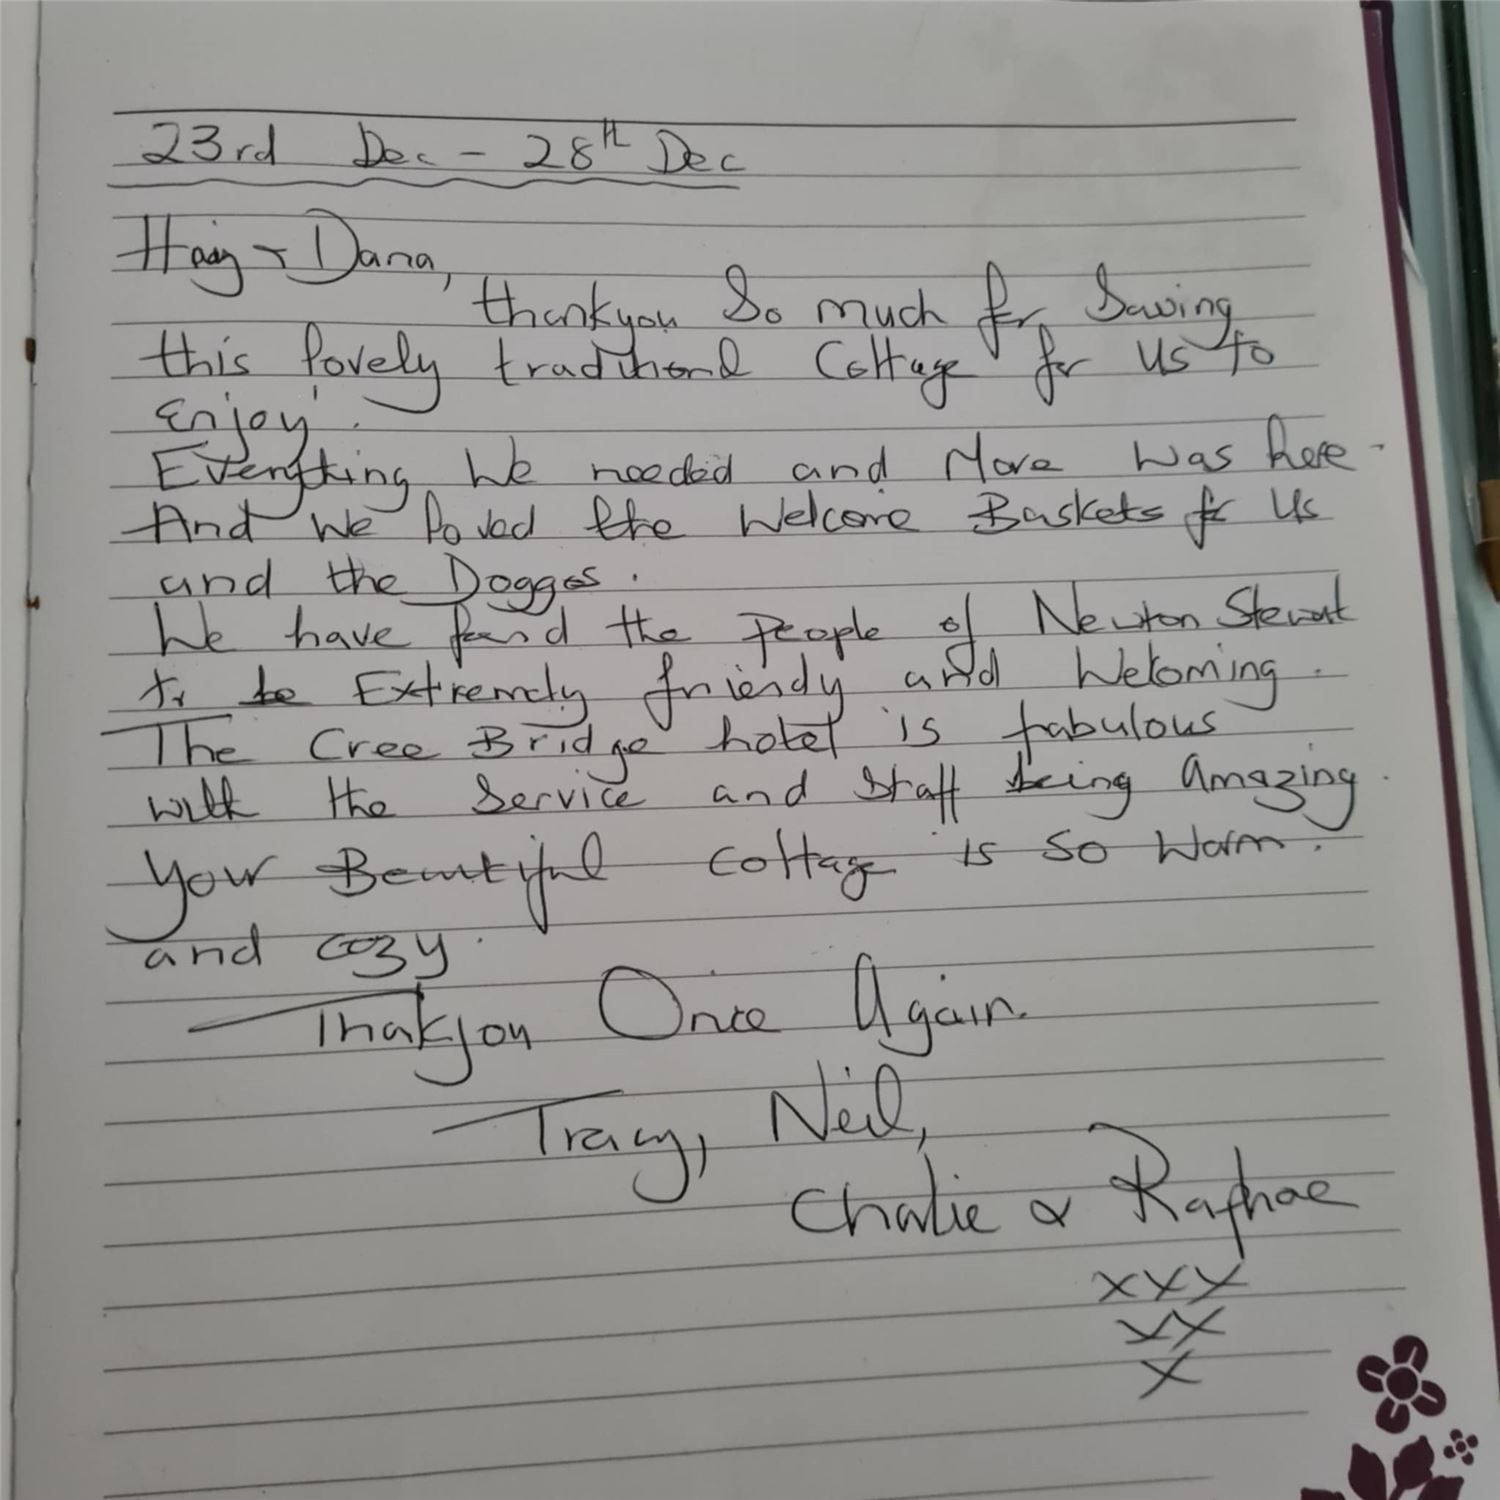 23rd Dec - 28th Dec
Haig + Dana,
thankyou So much for Saving
this lovely traditional Cottage for us to
enjoy.
Everything We needed and More was here.
And We loved the Welcome Baskets for Us
and the Dogges.
We have found the People of Newton Stewart
to be Extremely friendy and Welcoming.
The Cree Bridge hotel is fabulous
with the Service and Staff being Amazing.
Your Beautiful Cottage is so Warm.
and cozy.
Thakyou Once Again.
Tracy, Neil,
Charlie & Raphae
xxx
xx
x